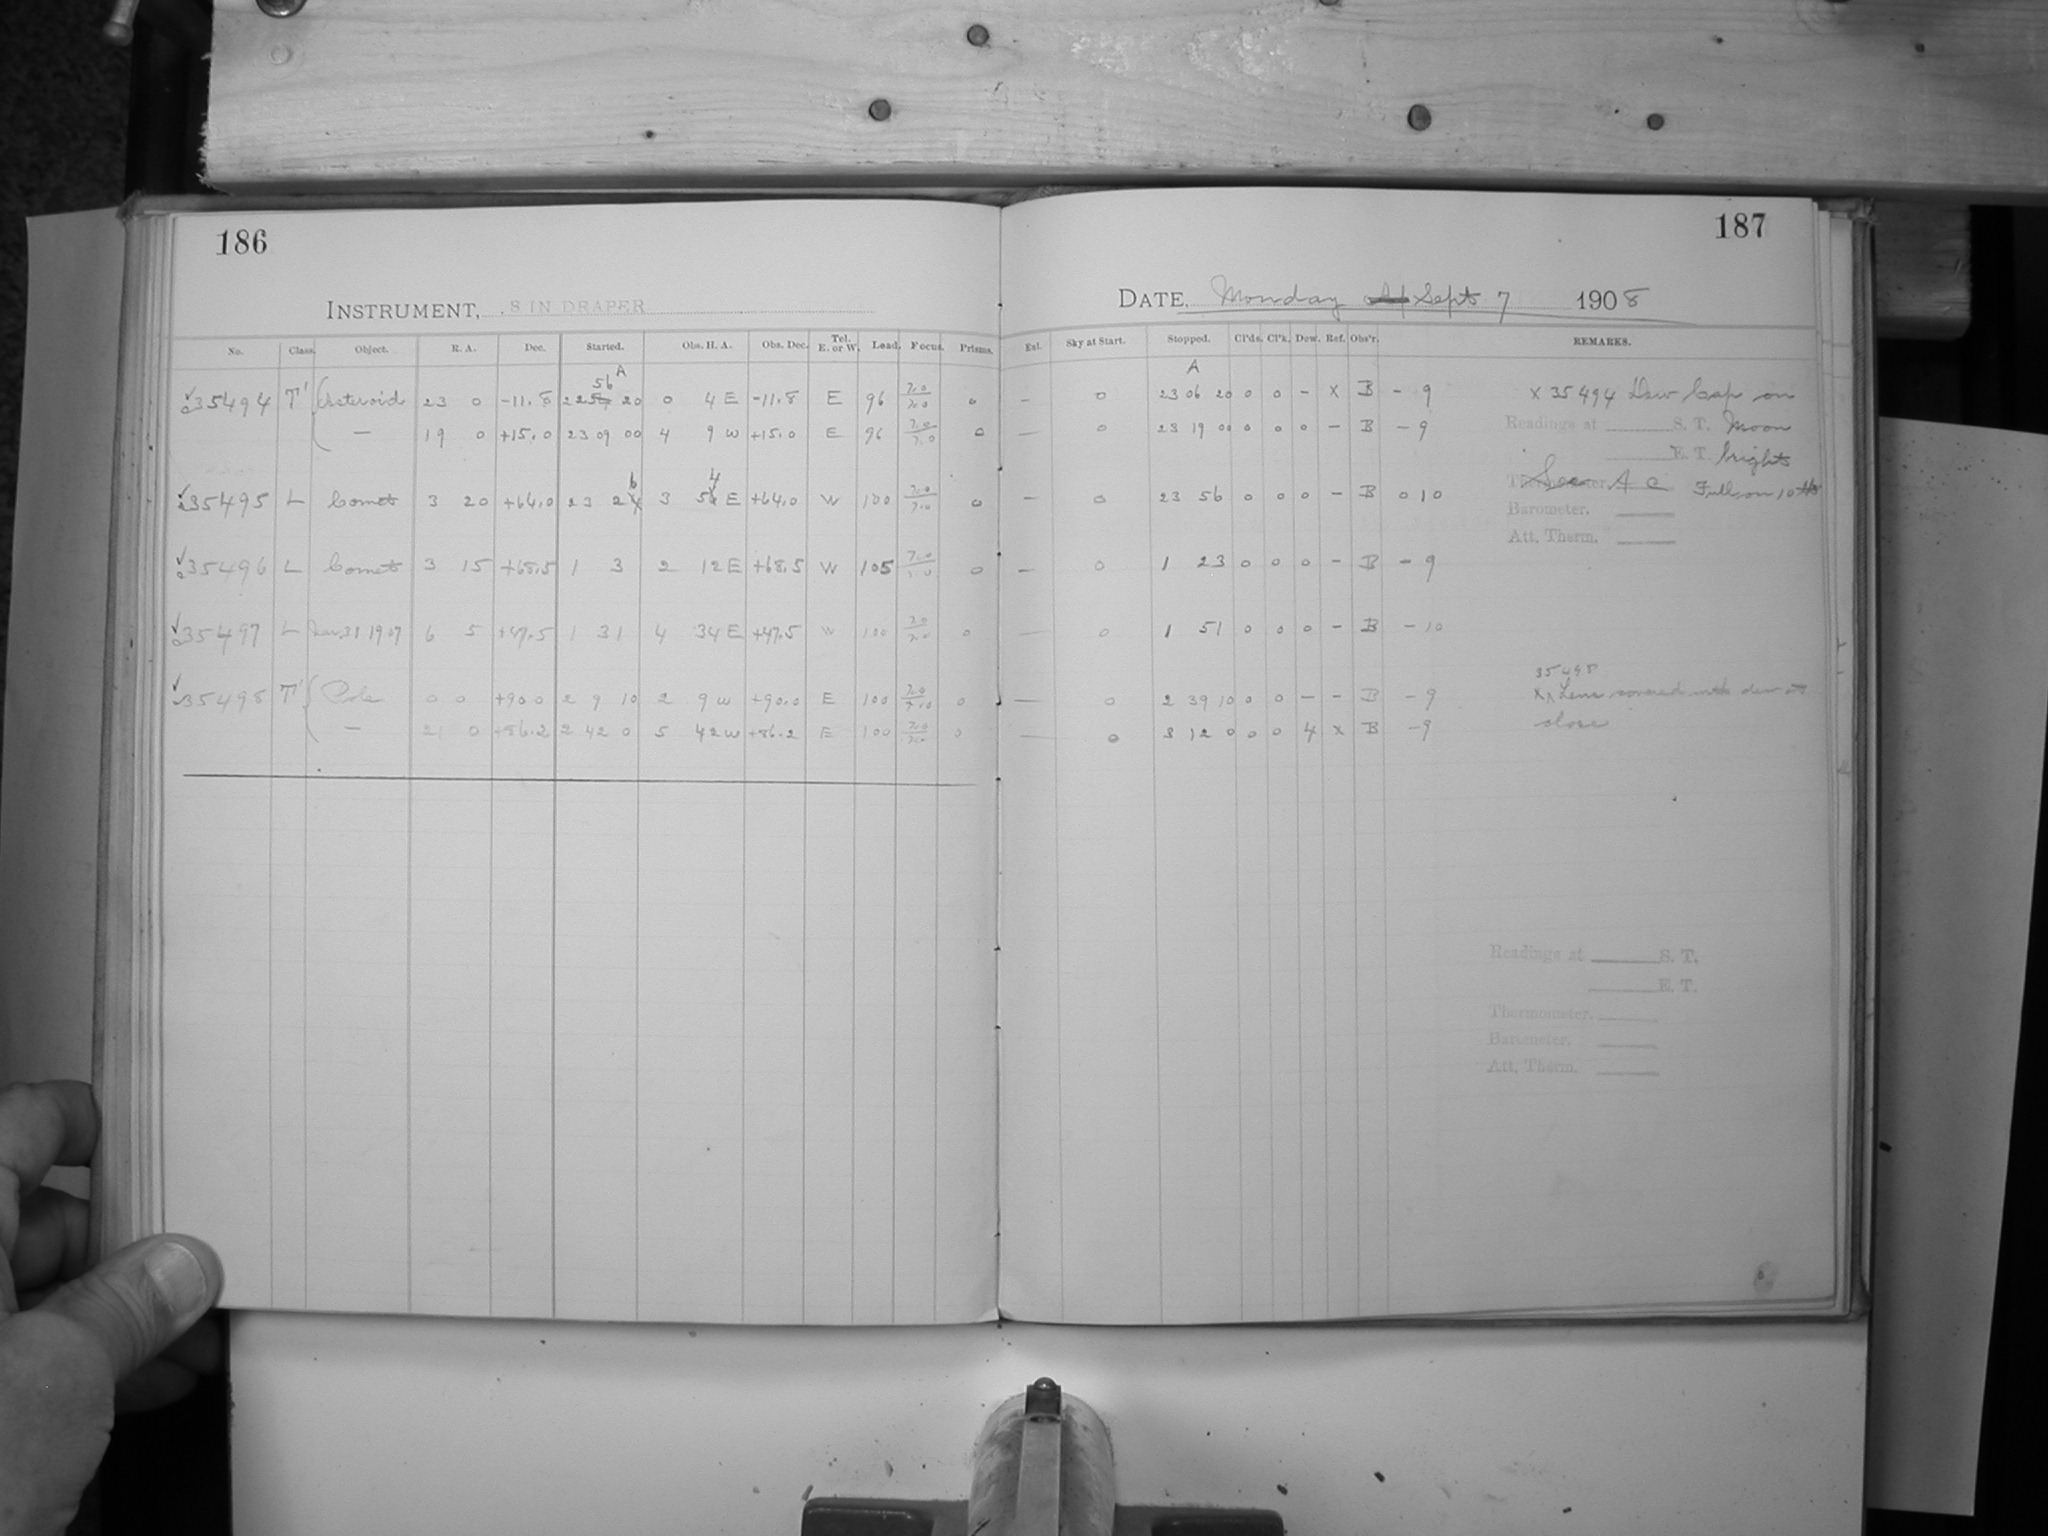 186
187
INSTRUMENT, 8 IN DRAPER
DATE, Monday Sept 7 1908
No. Class. Object. R. A. Dec. Started. Obs. H. A. Obs. Dec. Tel. E. or W. Lead. Focus. Prisms.
Sky at Start. Stopped. Cl'ds. Cl'k. Dew. Ref. Obs'r. REMARKS.
56 A
A
35494 T' Asteroid 23 0 -11.8 22 20 0 4 E -11.8 E 96 7.0/7.0 0 — 0 23 06 20 0 0 - X B - 9 X 35494 Dew Cap on
— 19 0 +15.0 23 09 00 4 9 W +15.0 E 96 7.0/7.0 0 — 0 23 19 00 0 0 0 - B - 9 Readings at S. T. Moon
E. T. bright
35495 L Comet 3 20 +64.0 23 26 3 54 E +64.0 W 100 7.0/7.0 0 — 0 23 56 0 0 0 - B 0 10 Full on 10th
Barometer.
Att. Therm.
35496 L Comet 3 15 +68.5 1 3 2 12 E +68.5 W 105 7.0/7.0 0 — 0 1 23 0 0 0 - B - 9
35497 L Jan 31 1907 6 5 +47.5 1 31 4 34 E +47.5 W 100 7.0/7.0 0 — 0 1 51 0 0 0 - B - 10
35498
35498 T' Pole 0 0 +90.0 2 9 10 2 9 W +90.0 E 100 7.0/7.0 0 — 0 2 39 10 0 0 - - B - 9 Lens covered with dew at
— 21 0 +86.2 2 42 0 5 42 W +86.2 E 100 7.0/7.0 0 — 0 3 12 0 0 0 4 X B - 9 close
Readings at S. T.
E. T.
Thermometer.
Barometer.
Att. Therm.